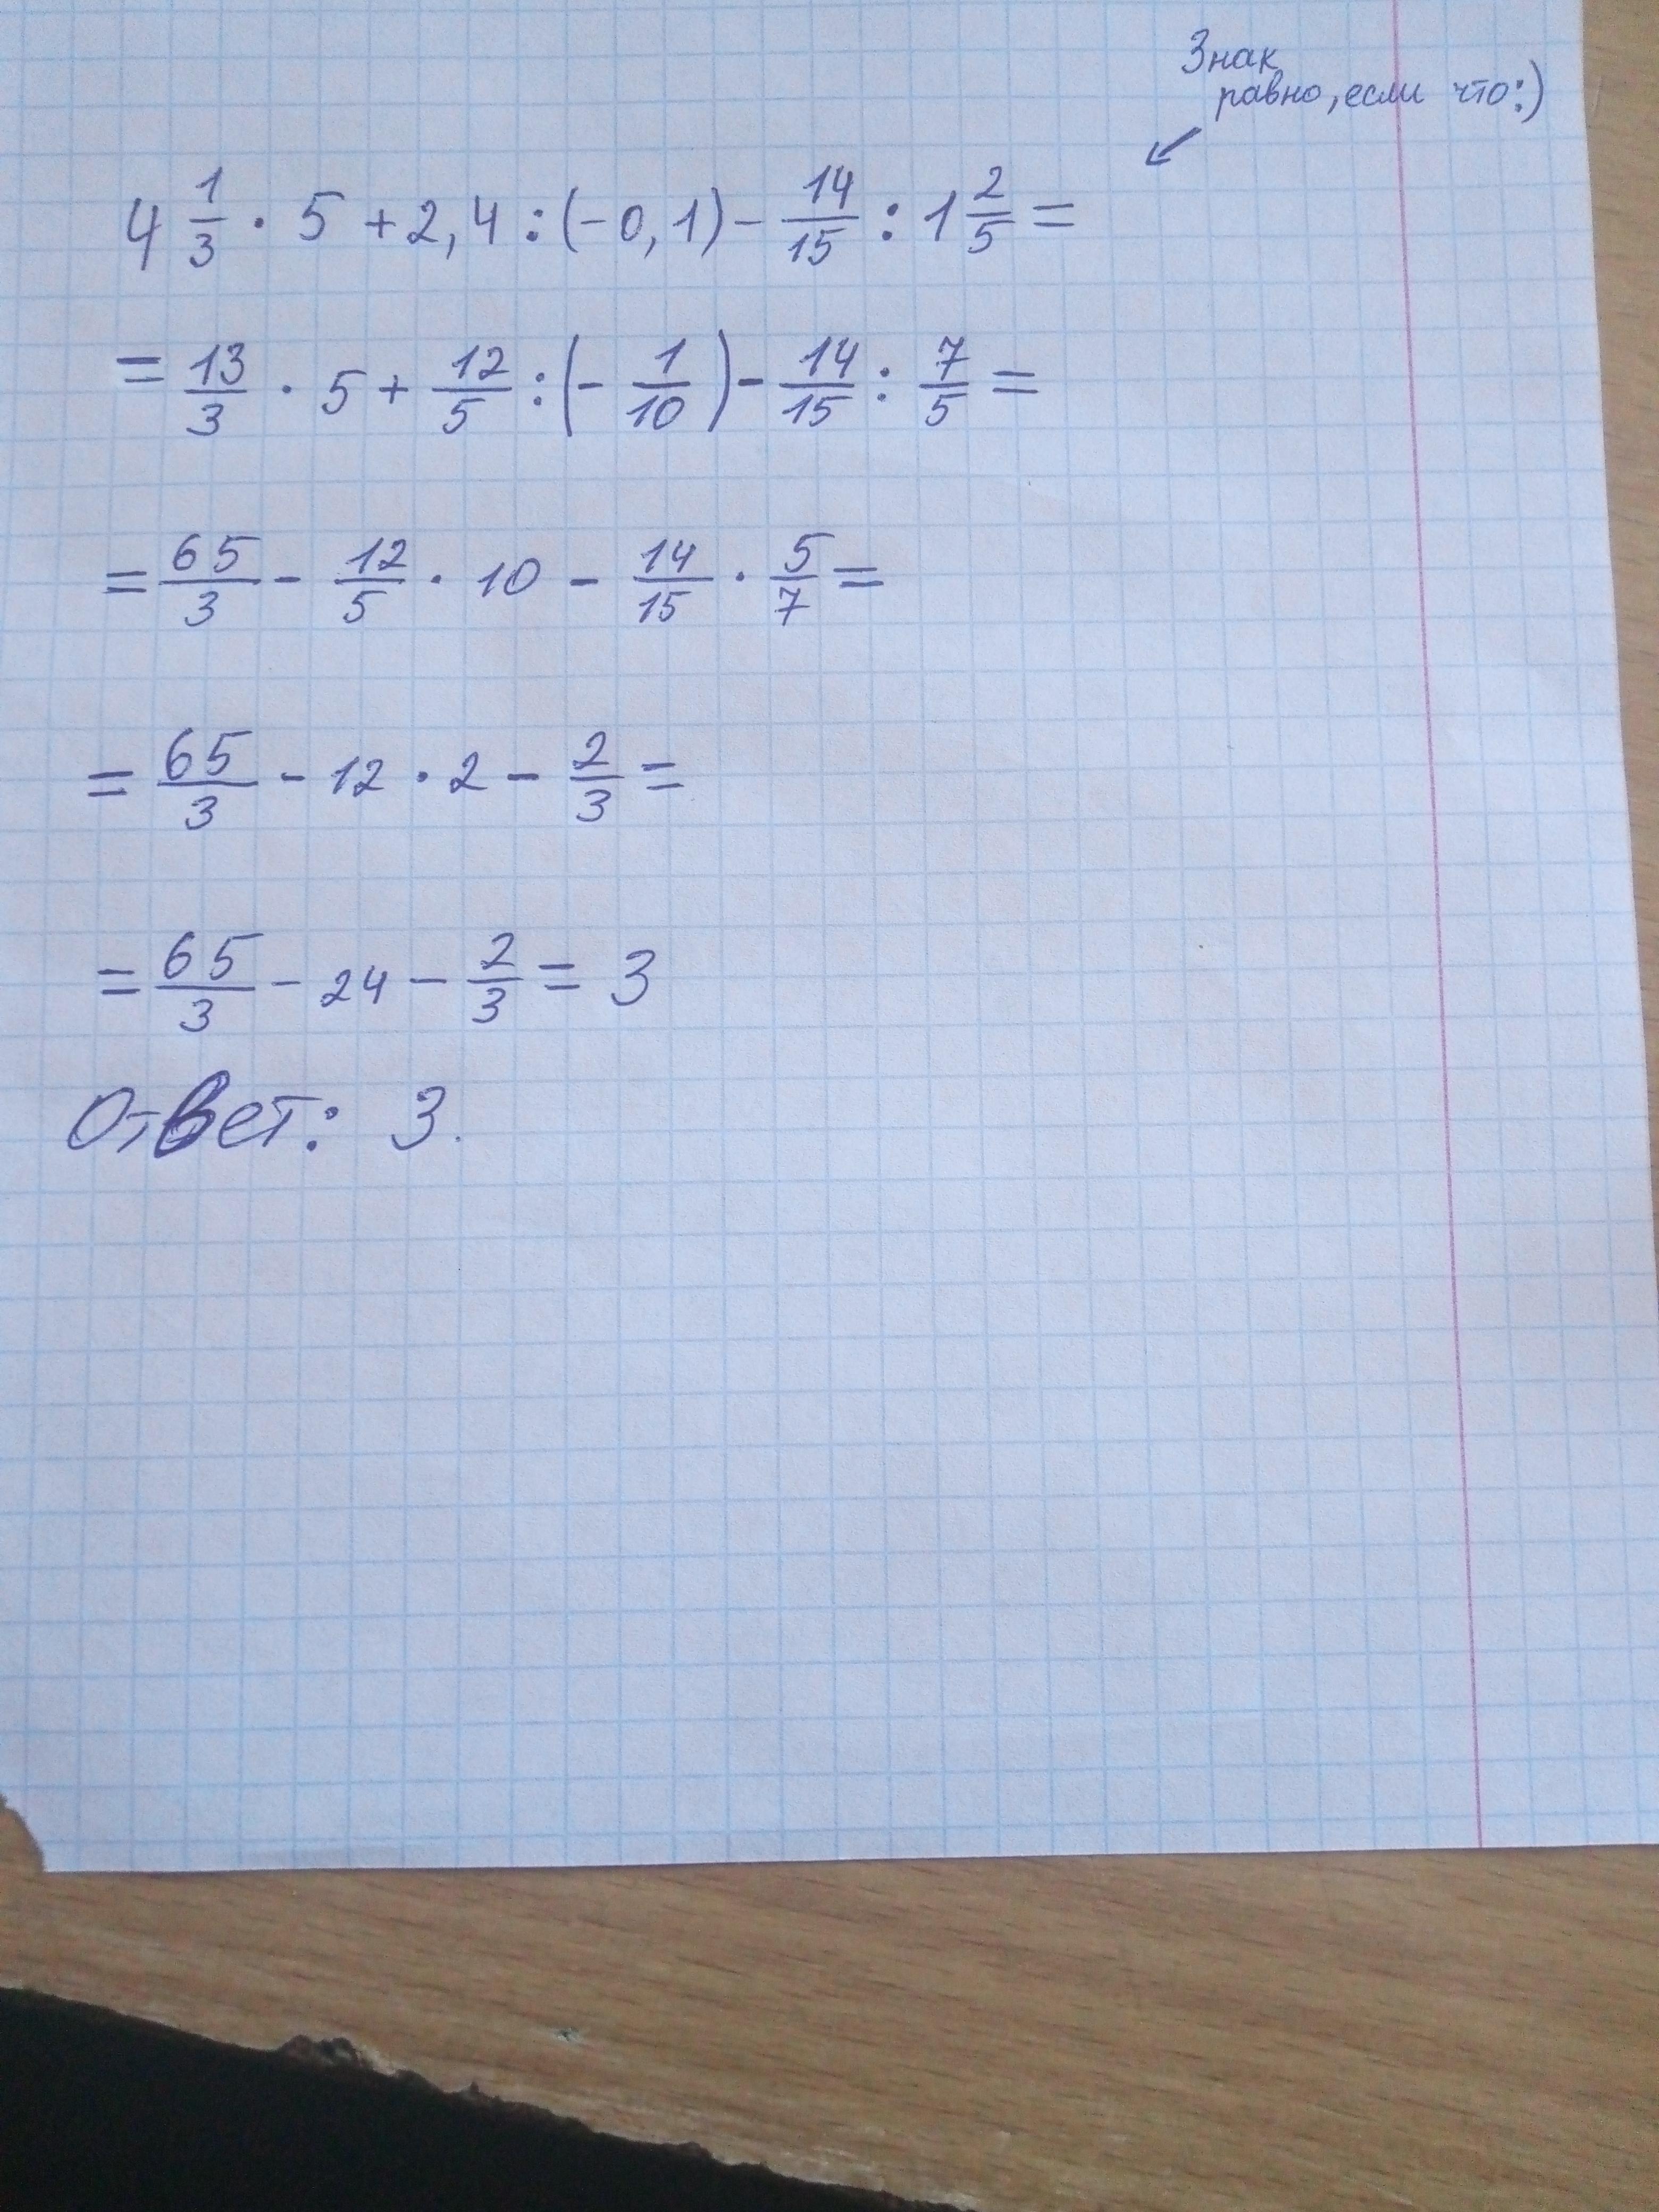 Знак
равно, если что:)
↙
4 1/3 · 5 + 2,4 : (-0,1) - 14/15 : 1 2/5 =
= 13/3 · 5 + 12/5 : (- 1/10) - 14/15 : 7/5 =
= 65/3 - 12/5 · 10 - 14/15 · 5/7 =
= 65/3 - 12 · 2 - 2/3 =
= 65/3 - 24 - 2/3 = 3
Ответ: 3.